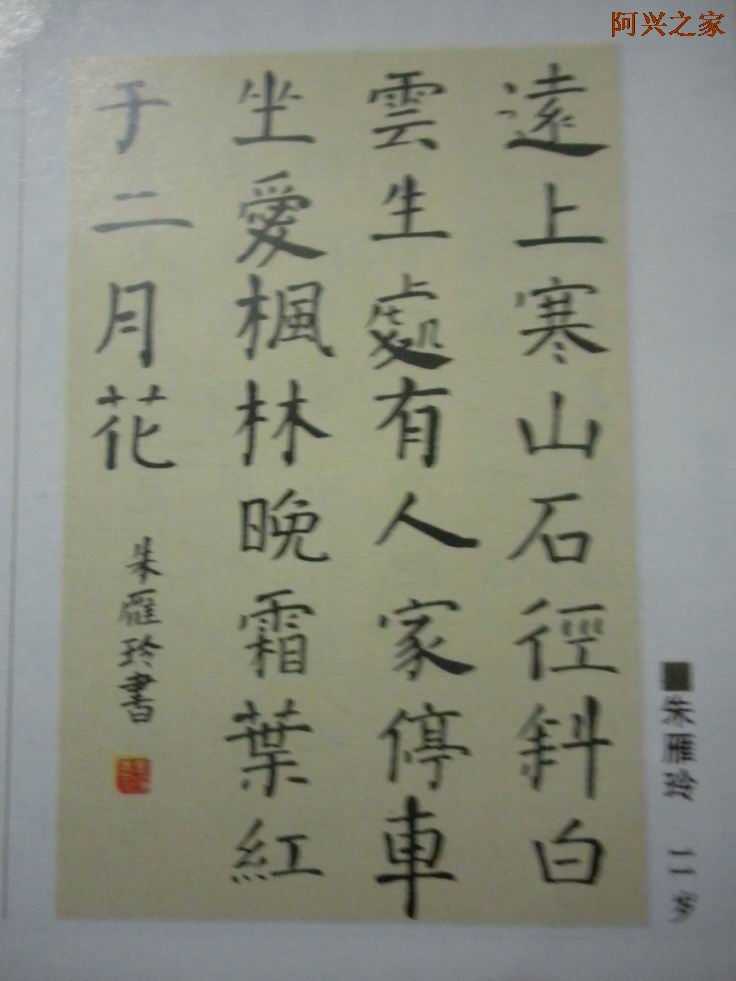 阿兴之家
遠上寒山石徑斜白
雲生處有人家停車
坐愛楓林晚霜葉紅
于二月花
朱雁玲書
朱雁玲 岁